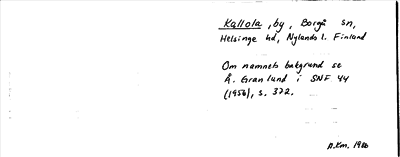 Kallola, by, Borgå sn,
Helsinge hd, Nylands l. Finland
Om namnets bakgrund se
Å. Granlund i SNF 44
(1956), s. 372.
A.Km. 1986